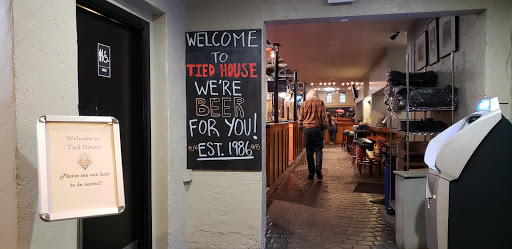 WELCOME
TO
TIED HOUSE
WE'RE
BEER
FOR YOU!
EST. 1986
Welcome to
Tied House!
Please see our host
to be seated!